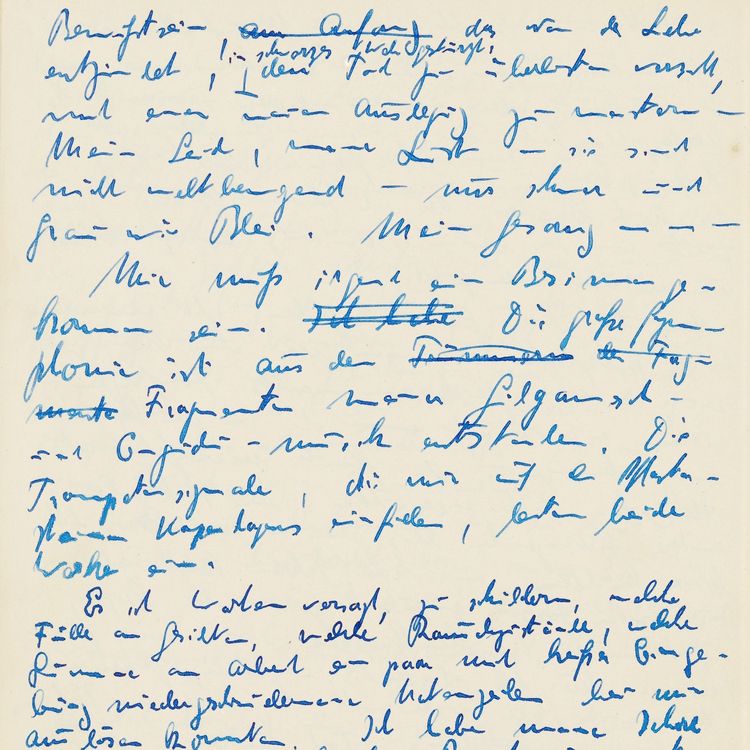 Bewußtsein, am Anfang das von der Liebe
entzündet, ins schwarze Weh gestürzt, dem Tod zu überlisten versucht,
mit einer neuen Auslegung zu meistern —
Mein Leid, meine Lust — sie sind
nicht weltbewegend — nur schwer und
grau wie Blei. Mein Gesang — — —
Mir muß irgend ein Besinnen ge-
kommen sein. Ich habe Die große Sym-
phonie ist aus den Trümmern der Frag-
mente Fragmenten meiner Gilgamesch-
und Engidu-musik entstanden. Die
Trompetensignale, die mir auf den Pflaster-
steinen Kopenhagens einfielen, leiten beide
Werke ein.
Es ist Worten versagt, zu schildern, welche
Fülle an Gesichten, welche Rauschzustände, welche
Summe an Arbeit ein paar mit heißer Einge-
bung niedergeschriebene Notenzeilen bei mir
auslösen konnten. Ich habe meine